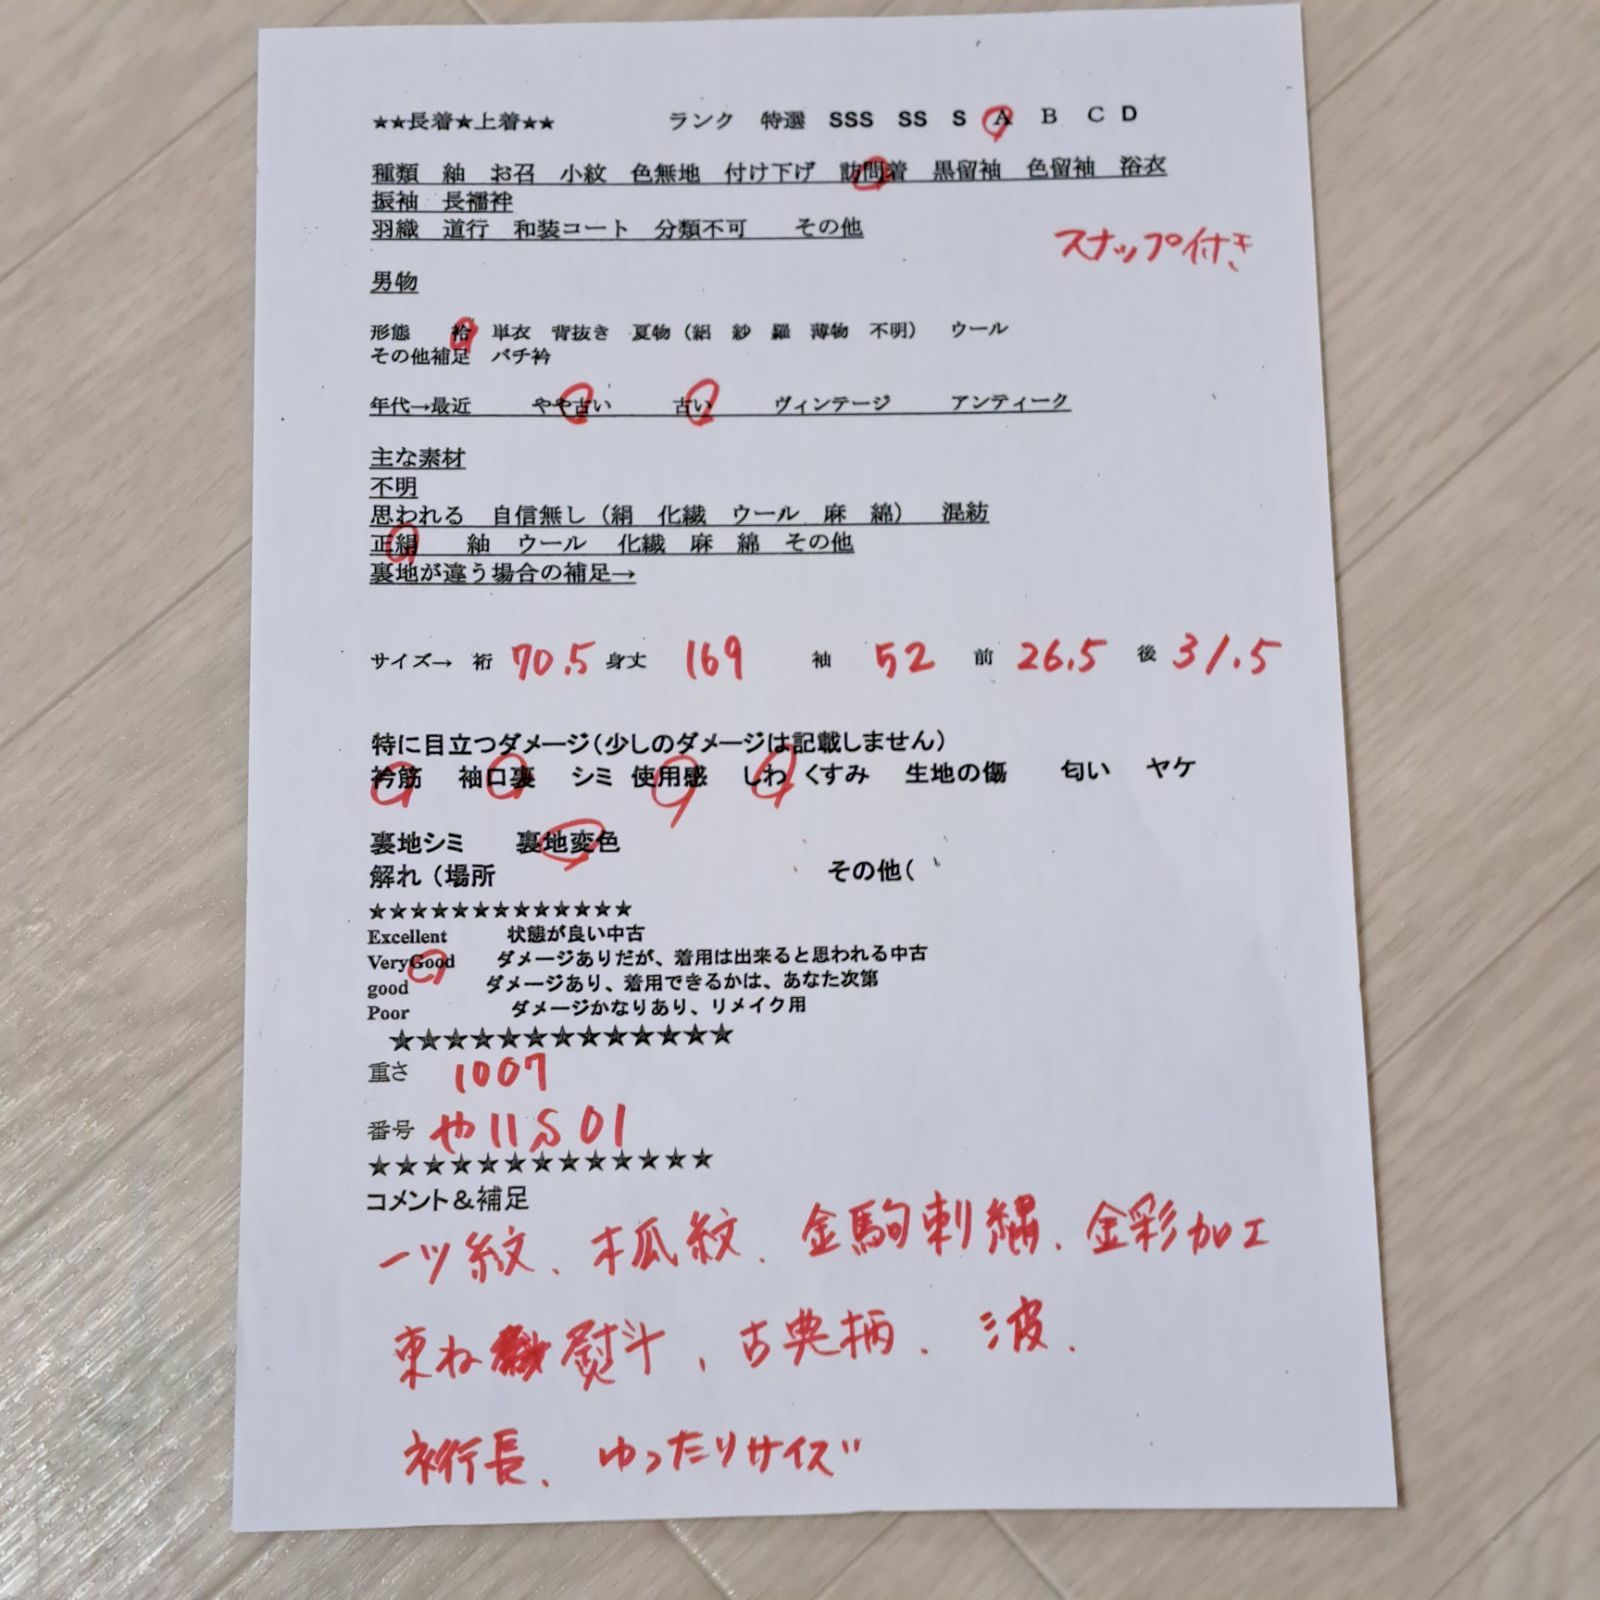 ★★長着★上着★★ ランク 特選 SSS SS S A B C D
種類 紬 お召 小紋 色無地 付け下げ 訪問着 黒留袖 色留袖 浴衣
振袖 長襦袢
羽織 道行 和装コート 分類不可 その他
スナップ付き
男物
形態 袷 単衣 背抜き 夏物（絽 紗 羅 薄物 不明） ウール
その他補足 バチ衿
年代→最近 やや古い 古い ヴィンテージ アンティーク
主な素材
不明
思われる 自信無し（絹 化繊 ウール 麻 綿） 混紡
正絹 紬 ウール 化繊 麻 綿 その他
裏地が違う場合の補足→
サイズ→ 裄 70.5 身丈 169 袖 52 前 26.5 後 31.5
特に目立つダメージ（少しのダメージは記載しません）
衿筋 袖口裏 シミ 使用感 しわ くすみ 生地の傷 匂い ヤケ
裏地シミ 裏地変色
解れ（場所 その他（
★★★★★★★★★★★★★
Excellent 状態が良い中古
VeryGood ダメージありだが、着用は出来ると思われる中古
good ダメージあり、着用できるかは、あなた次第
Poor ダメージかなりあり、リメイク用
★★★★★★★★★★★★★
重さ 1007
番号 や11S01
★★★★★★★★★★★★★
コメント＆補足
一ツ紋、木瓜紋、金駒刺繍、金彩加工
束ね熨斗、古典柄、波、
裄長、ゆったりサイズ